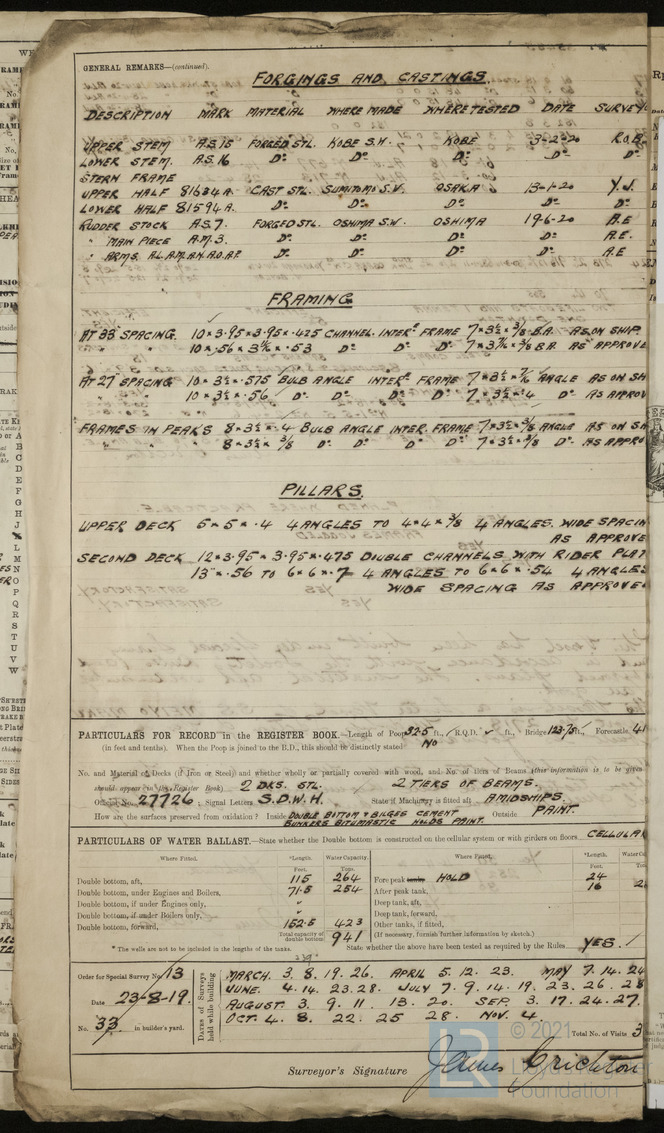 GENERAL REMARKS—(continued).
FORGINGS AND CASTINGS.
DESCRIPTION MARK MATERIAL WHERE MADE WHERE TESTED DATE SURVEY
UPPER STEM A.S.15 FORGED STL. KOBE S.W. KOBE 3-2-20 R.O.B.
LOWER STEM. A.S.16 Do. Do. Do. Do. Do.
STERN FRAME
UPPER HALF 81634A. CAST STL. SUMITOMO S.V. OSAKA 13-1-20 Y.J.
LOWER HALF 81594A. Do. Do. Do. Do. Do.
RUDDER STOCK A.S.7. FORGED STL. OSHIMA S.W. OSHIMA 19-6-20 A.E
" MAIN PIECE A.M.3. Do. Do. Do. Do. A.E.
" ARMS. A.L.A.M.A.N.A.O.A.P. Do. Do. Do. Do. A.E
FRAMING
AT 33" SPACING. 10 × 3.95 × 3.95 × .425 CHANNEL. INTERE FRAME 7 × 3½ × 3/8 B.A. AS ON SHIP.
" " 10 × .56 × 3½ × .53 Do. Do. Do. 7 × 3½ × 3/8 B.A. AS APPROVE
AT 27" SPACING 10 × 3½ × .575 BULB ANGLE INTERE FRAME 7 × 3½ × 7/16 ANGLE AS ON SH
" " 10 × 3½ × .56 Do. Do. Do. Do. 7 × 3½ × .4 Do. AS APPROV
FRAMES IN PEAKS 8 × 3½ × .4 BULB ANGLE INTER. FRAME 7 × 3½ × 3/8 ANGLE AS ON SH
" " 8 × 3½ × 3/8 Do. Do. Do. Do. 7 × 3½ × 3/8 Do. AS APPRO
PILLARS.
UPPER DECK 5 × 5 × .4 4 ANGLES TO 4 × 4 × 3/8 4 ANGLES. WIDE SPACIN
AS APPROVE
SECOND DECK 12 × 3.95 × 3.95 × .475 DOUBLE CHANNELS WITH RIDER PLAT
13" × .56 TO 6 × 6 × .7 4 ANGLES TO 6 × 6 × .54 4 ANGLES
WIDE SPACING AS APPROVE
PARTICULARS FOR RECORD in the REGISTER BOOK.—Length of Poop 32.5 ft., R.Q.D. ✓ ft., Bridge 123.75 ft., Forecastle, 41
(in feet and tenths). When the Poop is joined to the B.D., this should be distinctly stated NO
No. and Material of Decks (if Iron or Steel) and whether wholly or partially covered with wood, and No. of tiers of Beams (this information is to be given
should appear in the Register Book) 2 DKS. STL. 2 TIERS OF BEAMS.
Official No. 27726, Signal Letters S.D.W.H. State if Machinery is fitted aft AMIDSHIPS.
How are the surfaces preserved from oxidation? Inside DOUBLE BOTTOM & BILGES CEMENT Outside PAINT.
BUNKERS BITUMASTIC HOLDS PAINT.
PARTICULARS OF WATER BALLAST.—State whether the Double bottom is constructed on the cellular system or with girders on floors CELLULAR
Where Fitted. *Length. Water Capacity. Where Fitted. *Length. Water Ca
Feet. Tons. Feet.
Double bottom, aft, 115 264 Fore peak tank, HOLD 24
Double bottom, under Engines and Boilers, 71.5 254 After peak tank, 16 2
Double bottom, if under Engines only, " Deep tank, aft,
Double bottom, if under Boilers only, " Deep tank, forward,
Double bottom, forward, 152.5 423 Other tanks, if fitted,
Total capacity of double bottom 941 (If necessary, furnish further information by sketch.)
* The wells are not to be included in the lengths of the tanks. State whether the above have been tested as required by the Rules YES.
Order for Special Survey No. 13
Date 23-8-19.
No. 33 in builder's yard.
Dates of Surveys held while building
MARCH. 3. 8. 19. 26. APRIL 5. 12. 23. MAY 7. 14. 24
JUNE. 4. 14. 23. 28. JULY 7. 9. 14. 19. 23. 26. 28
AUGUST. 3. 9. 11. 13. 20. SEP. 3. 17. 24. 27.
OCT. 4. 8. 22. 25 28. NOV. 4.
Total No. of Visits 3
Surveyor's Signature James Crichton
© 2021
Lloyd's Register
Foundation